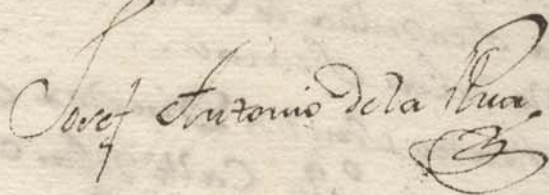 Josef Antonio de la Rua